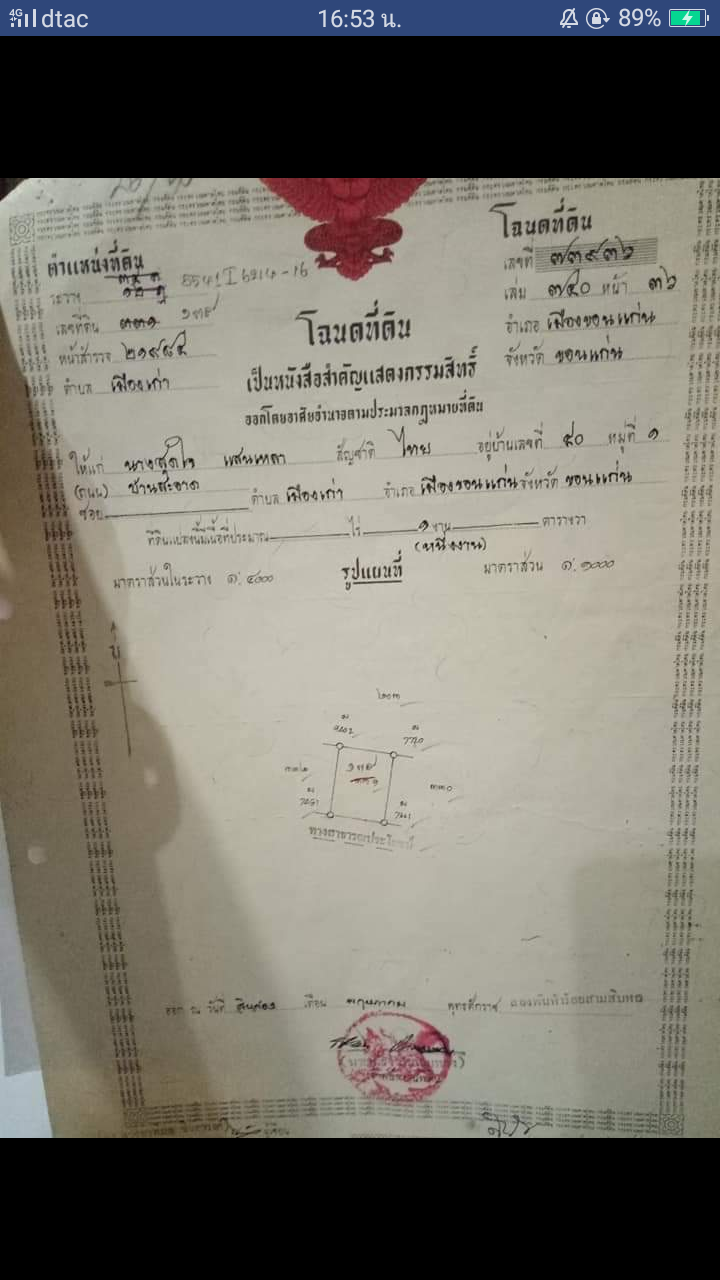 4G dtac 16:53 น. 89%
โฉนดที่ดิน
ตำแหน่งที่ดิน
เลขที่ ๗๓๙๓๖
ระวาง 5541 I 6214-16
เล่ม ๗๔๐ หน้า ๓๖
เลขที่ดิน ๓๓๑ ๑๓๙
อำเภอ เมืองขอนแก่น
หน้าสำรวจ ๒๑๙๘๕
จังหวัด ขอนแก่น
ตำบล เมืองเก่า
โฉนดที่ดิน
เป็นหนังสือสำคัญแสดงกรรมสิทธิ์
ออกโดยอาศัยอำนาจตามประมวลกฎหมายที่ดิน
ให้แก่ นางสุดใจ แสนเหลา สัญชาติ ไทย อยู่บ้านเลขที่ ๕๐ หมู่ที่ ๑
(ถนน) บ้านสะอาด
ซอย ตำบล เมืองเก่า อำเภอ เมืองขอนแก่น จังหวัด ขอนแก่น
ที่ดินแปลงนี้มีเนื้อที่ประมาณ ไร่ ๑ งาน ตารางวา
(หนึ่งงาน)
มาตราส่วนในระวาง ๑:๔๐๐๐ รูปแผนที่ มาตราส่วน ๑:๑๐๐๐
น
๒๐๓
๑๓๙
๓๓๑
๓๓๒
๓๓๐
ทางสาธารณประโยชน์
ออก ณ วันที่ สิบสอง เดือน พฤษภาคม พุทธศักราช สองพันห้าร้อยสามสิบหก